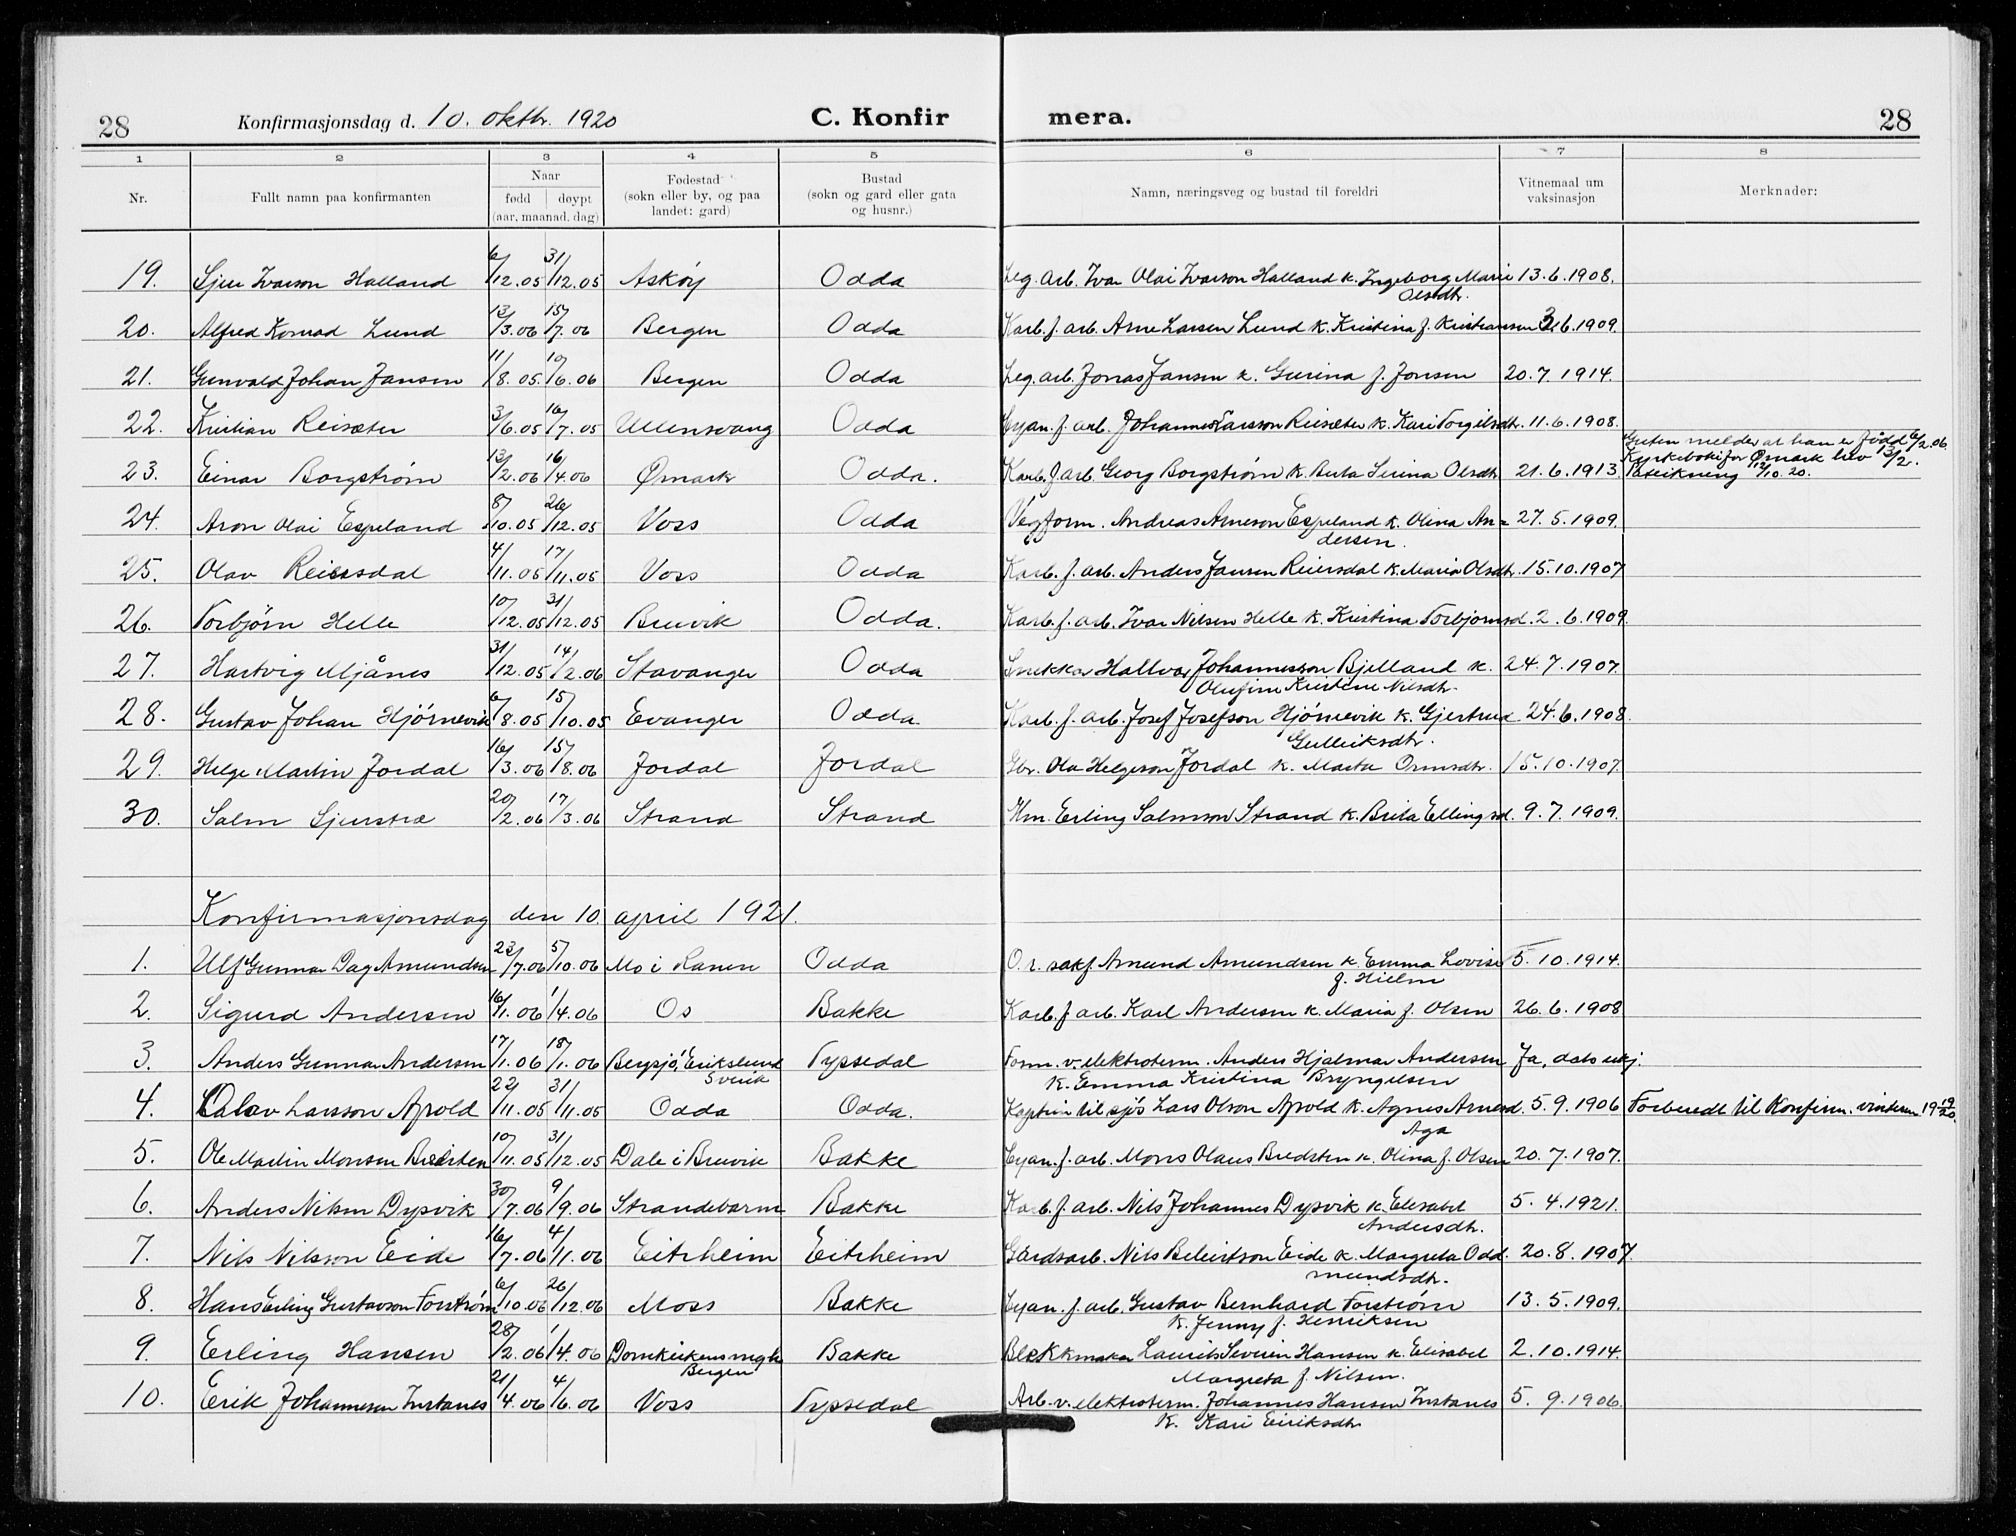 28 Konfirmasjonsdag d. 10. oktbr. 1920 C. Konfir mera. 28
1 2 3 4 5 6 7 8
Nr. Fullt namn paa konfirmanten Naar fødd døypt (aar, maanad, dag) Fødestad (sokn eller by, og paa landet: gard) Bustad (sokn og gard eller gata og husnr.) Namn, næringsveg og bustad til foreldri Vitnemaal um vaksinasjon Merknader:
19. Sjur Ivarson Halland 6/12.05 31/12.05 Askøy Odda Leg. arb. Ivar Olai Ivarson Halland k. Ingeborg Marie 13.6.1908.
Olsdtr.
20. Alfred Konrad Lund 13/3.06 15/7.06 Bergen Odda Karb. f. arb. Arne Larsen Lund k. Kristina f. Kristiansen 3.6.1909.
21. Gunvald Johan Jansen 11/8.05. 10/6.06 Bergen Odda Leg. arb. Jonas Jansen k. Gurina f. Jonsen 20.7.1914.
22. Kristian Reisæter 3/6.05 16/7.05 Ullensvang Odda Cyan. f. arb. Johannes Larsson Reisæter k. Kari Torgilsdtr. 11.6.1908.
23. Einar Borgstrøm 13/2.06 16/4.06 Ømark Odda. Karb. f. arb. Georg Borgstrøm k. Berta Serina Olsdtr. 21.6.1913. Guten melder at han er fødd 6/2.06
Kyrkeboki for Ømark hev 13/2.
12/10.20.
24. Aron Olai Espeland 8/10.05 26/12.05 Voss Odda Vegform. Andreas Arneson Espeland k. Olina An= 27.5.1909.
dersen.
25. Olav Reiersdal 4/11.05 17/11.05 Voss Odda Karb. f. arb. Anders Jansen Reiersdal k. Maria Olsdtr. 15.10.1907
26. Torbjørn Helle 10/12.05 31/12.05 Bruvik Odda. Karb. f. arb. Ivar Nilsen Helle k. Kristina Torbjørnsd. 2.6.1909.
27. Hartvig Mjånes 31/12.05 14/2.06 Stavanger Odda Snekkar Hallvar Johannesson Bjelland k. 24.7.1907.
Olufine Kristine Nilsdtr.
28. Gustav Johan Hjørnevik 6/8.05 15/10.05 Evanger Odda Karb. f. arb. Josef Josefson Hjørnevik k. Gjertrud 24.6.1908.
Gulleiksdtr.
29. Helge Martin Jordal 16/3.06 15/8.06 Jordal Jordal Gbr. Ola Helgeson Jordal k. Marta Ormsdtr. 15.10.1907.
30. Salm Sjurstræ 20/2.06 17/3.06 Strand Strand Hm. Erling Salmson Strand k. Brita Ellingsd. 9.7.1909.
Konfirmasjonsdag den 10. april 1921.
1. Ulf Gunnar Dag Amundsen 23/7.06 5/10.06 Mo i Ranen Odda O.r. sakf. Amund Amundsen k. Emma Lovise 5.10.1914.
f. Hielm
2. Sigurd Andersen 16/1.06 1/4.06 Os Bakke Karb. f. arb. Karl Andersen k. Maria f. Olsen 26.6.1908
3. Anders Gunnar Andersen 17/1.06 18/1.06 Bergsjö, Erikslund Tyssedal Form. v. elektroterm. Anders Hjalmar Andersen Ja, dato ukj.
Sverik k. Emma Kristina Bryngelsen
4. Olav Larsson Apold 22/11.05 31/11.05 Odda Odda. Kaptein til sjøs Lars Olson Apold k. Agnes Arnesd. 5.9.1906 Forberedt til Konfirm. vinteren 19 19/20.
Aga
5. Ole Martin Monsen Bredsten 10/11.05 31/12.05 Dale i Bruvik Bakke Cyan. f. arb. Mons Olaus Bredsten k. Olina f. Olsen 20.7.1907.
6. Anders Nilsen Dysvik 30/7.06 9/9.06 Strandebarm Bakke Karb. f. arb. Nils Johannes Dysvik k. Elisabet 5.4.1921.
Andersdtr.
7. Nils Nilsson Eide 16/7.06 4/11.06 Eitrheim Eitrheim Gardsarb. Nils Beleirtson Eide k. Margreta Odd 20.8.1907
mundsdtr.
8. Hans Erling Gustavson Forstrøm 6/10.06 26/12.06 Moss Bakke Cyan. f. arb. Gustav Bernhard Forstrøm 13.5.1909.
k. Jenny f. Henriksen
9. Erling Hansen 28/2.06 1/4.06 Domkirkens mgh Bakke Blekkmaker Laurits Severin Hansen k. Elisabet 2.10.1914.
Bergen Margreta f. Nilsen.
10. Erik Johanneson Instanes 21/4.06 4/6.06 Voss Tyssedal Arb. v. elektroterm. Johannes Hansen Instanes 5.9.1906.
k. Kari Eiriksdtr